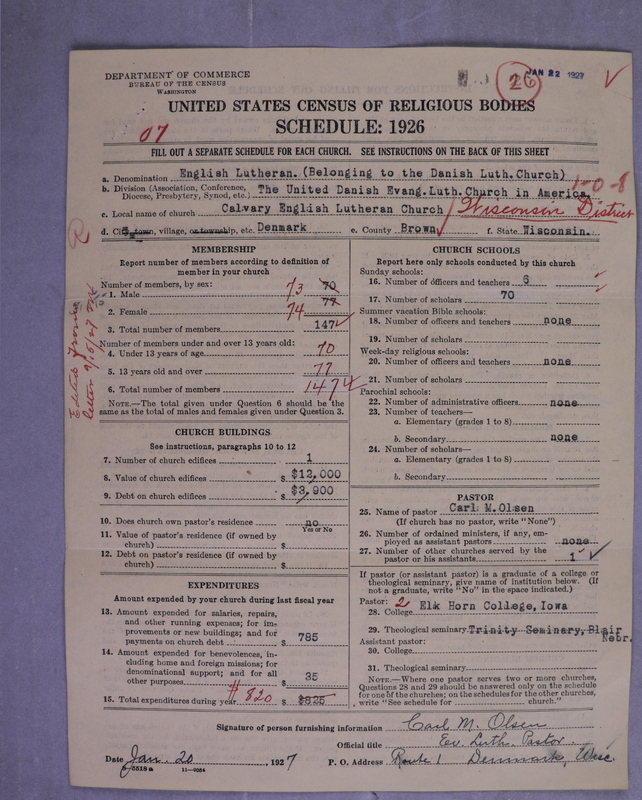 DEPARTMENT OF COMMERCE
BUREAU OF THE CENSUS
WASHINGTON
26
JAN 22 1927
UNITED STATES CENSUS OF RELIGIOUS BODIES
SCHEDULE: 1926
07
FILL OUT A SEPARATE SCHEDULE FOR EACH CHURCH. SEE INSTRUCTIONS ON THE BACK OF THIS SHEET
a. Denomination English Lutheran. (Belonging to the Danish Luth. Church)
b. Division (Association, Conference, Diocese, Presbytery, Synod, etc.) The United Danish Evang. Luth. Church in America. 1-0-8
c. Local name of church Calvary English Lutheran Church / Wisconsin District
d. City, town, village, or township, etc. Denmark e. County Brown f. State Wisconsin.
R
Edited from letter 9/15/27
MEMBERSHIP
Report number of members according to definition of
member in your church
Number of members, by sex:
1. Male 73 70
2. Female 74 77
3. Total number of members 147
Number of members under and over 13 years old:
4. Under 13 years of age 70
5. 13 years old and over 77
6. Total number of members 147
NOTE.—The total given under Question 6 should be the
same as the total of males and females given under Question 3.
CHURCH BUILDINGS
See instructions, paragraphs 10 to 12
7. Number of church edifices 1
8. Value of church edifices $ $12,000
9. Debt on church edifices $ $3,900
10. Does church own pastor's residence no
Yes or No
11. Value of pastor's residence (if owned by
church) $
12. Debt on pastor's residence (if owned by
church) $
EXPENDITURES
Amount expended by your church during last fiscal year
13. Amount expended for salaries, repairs,
and other running expenses; for im-
provements or new buildings; and for
payments on church debt $ 785
14. Amount expended for benevolences, in-
cluding home and foreign missions; for
denominational support; and for all
other purposes $ 35
15. Total expenditures during year $820 $ $825
CHURCH SCHOOLS
Report here only schools conducted by this church
Sunday schools:
16. Number of officers and teachers 6
17. Number of scholars 70
Summer vacation Bible schools:
18. Number of officers and teachers none
19. Number of scholars
Week-day religious schools:
20. Number of officers and teachers none
21. Number of scholars
Parochial schools:
22. Number of administrative officers none
23. Number of teachers—
a. Elementary (grades 1 to 8)
b. Secondary none
24. Number of scholars—
a. Elementary (grades 1 to 8)
b. Secondary
PASTOR
25. Name of pastor Carl M. Olsen
(If church has no pastor, write "None")
26. Number of ordained ministers, if any, em-
ployed as assistant pastors none
27. Number of other churches served by the
pastor or his assistants 1
If pastor (or assistant pastor) is a graduate of a college or
theological seminary, give name of institution below. (If
not a graduate, write "No" in the space indicated.)
Pastor: 2
28. College Elk Horn College, Iowa
29. Theological seminary Trinity Seminary, Blair
Nebr.
Assistant pastor:
30. College
31. Theological seminary
NOTE.—Where one pastor serves two or more churches,
Questions 28 and 29 should be answered only on the schedule
for one of the churches; on the schedules for the other churches,
write "See schedule for church."
Signature of person furnishing information Carl M. Olsen
Official title Ev. Luth. Pastor
Date Jan. 20, 1927 P. O. Address Route 1 Denmark, Wisc.
11—9684